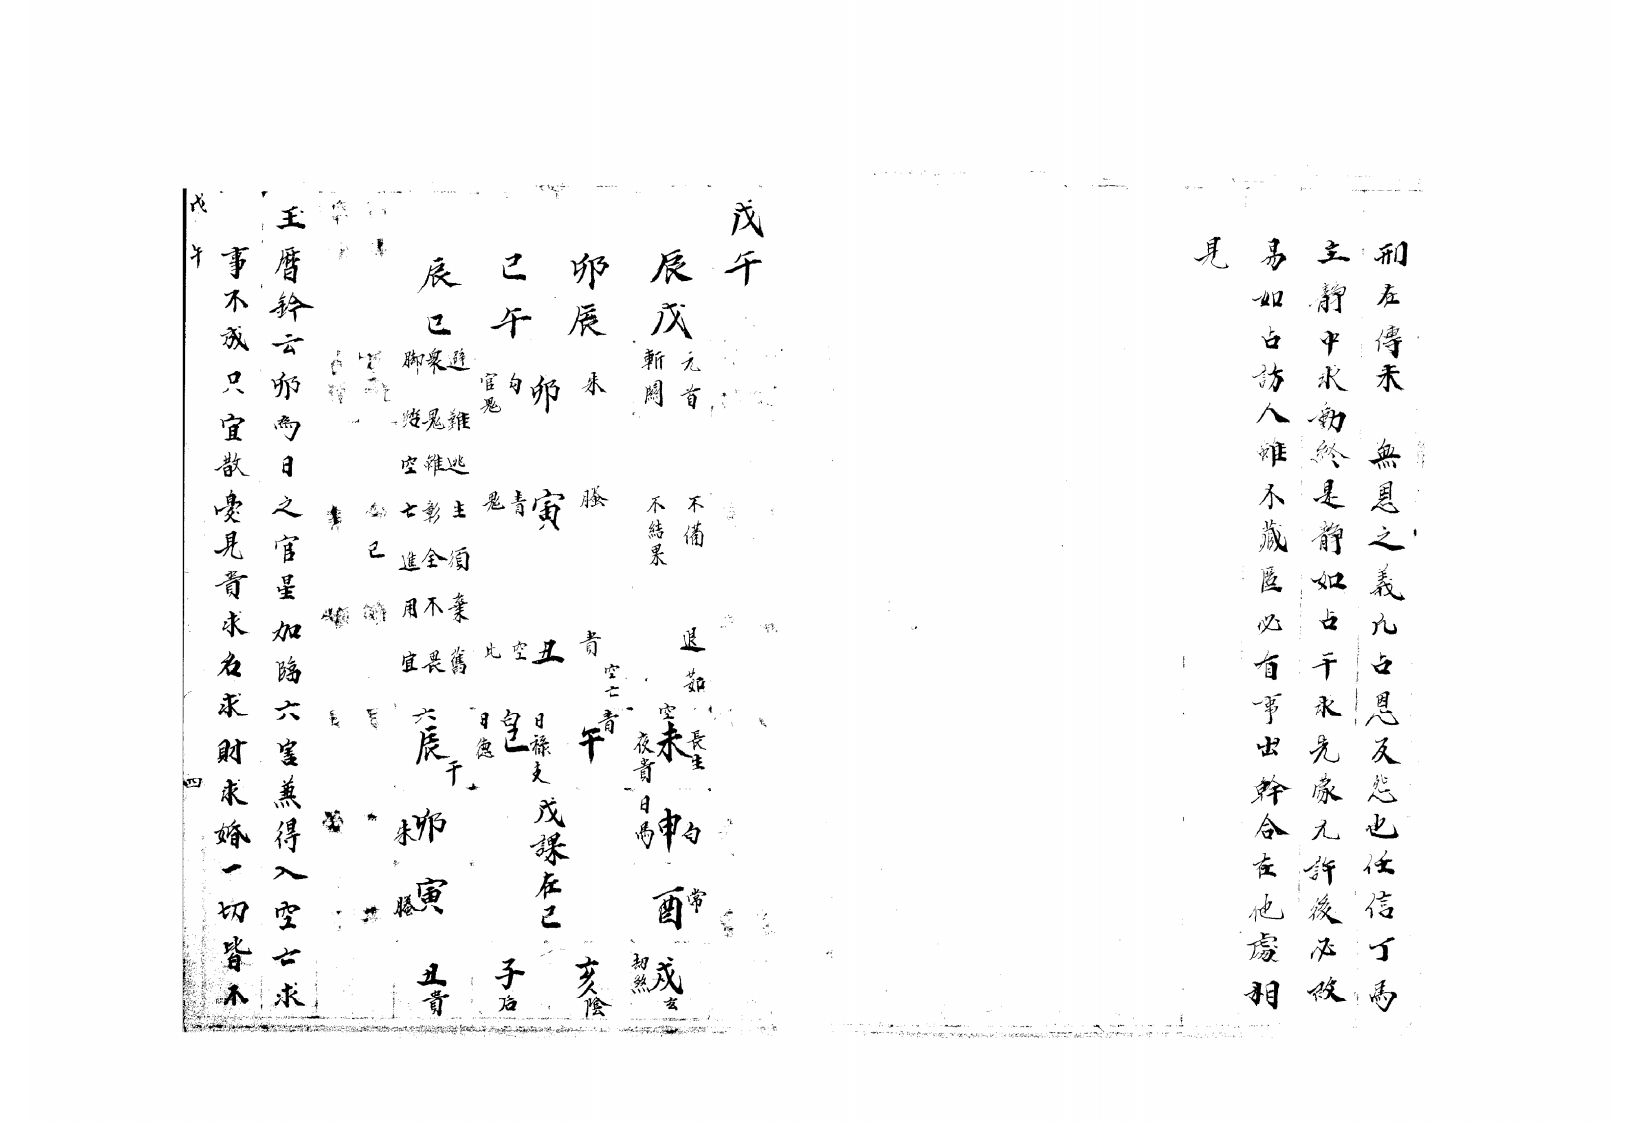 刑在傳末　無恩之義凡占恩反怨也任信丁馬
主靜中求動終是靜如占干求先蒙允許後必改
易如占訪人雖不藏匿必有事出幹合在他處相
見
戊午
辰戊
元首　不備　退茹
斬關　不結果
卯辰
朱　螣　貴
巳午
卯　寅　丑
勾　青　空
官鬼　鬼　比
辰巳
避難逃主須棄舊
衆鬼雖彰全不畏
脚踏空亡進用宜
空　未　長生　夜貴
日馬　申　勾
酉　常
劫煞　戌　玄
空亡　青　午
亥　陰
日祿　支　戊課在巳
白　巳　日德
子　后
六　辰　干
朱　卯
螣　寅
丑　貴
玉曆鈐云卯為日之官星加臨六害兼得入空亡求
事不成只宜散憂見貴求名求財求婚一切皆不
戊午　四